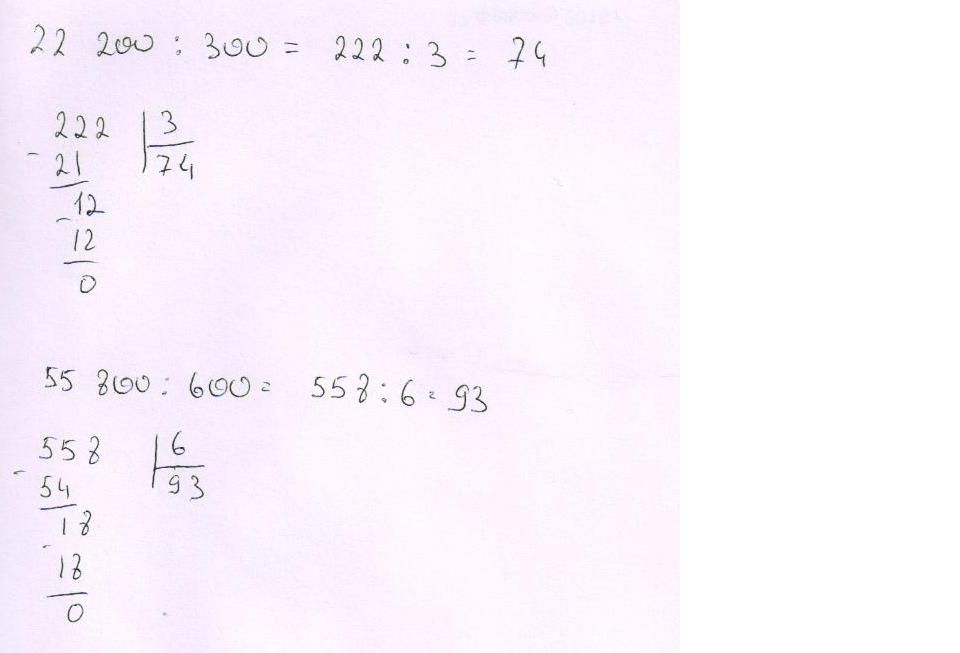 22 200 : 300 = 222 : 3 = 74
222 3
- 21 74
- 12
12
0
55 800 : 600 = 558 : 6 = 93
558 6
- 54 93
- 18
18
0